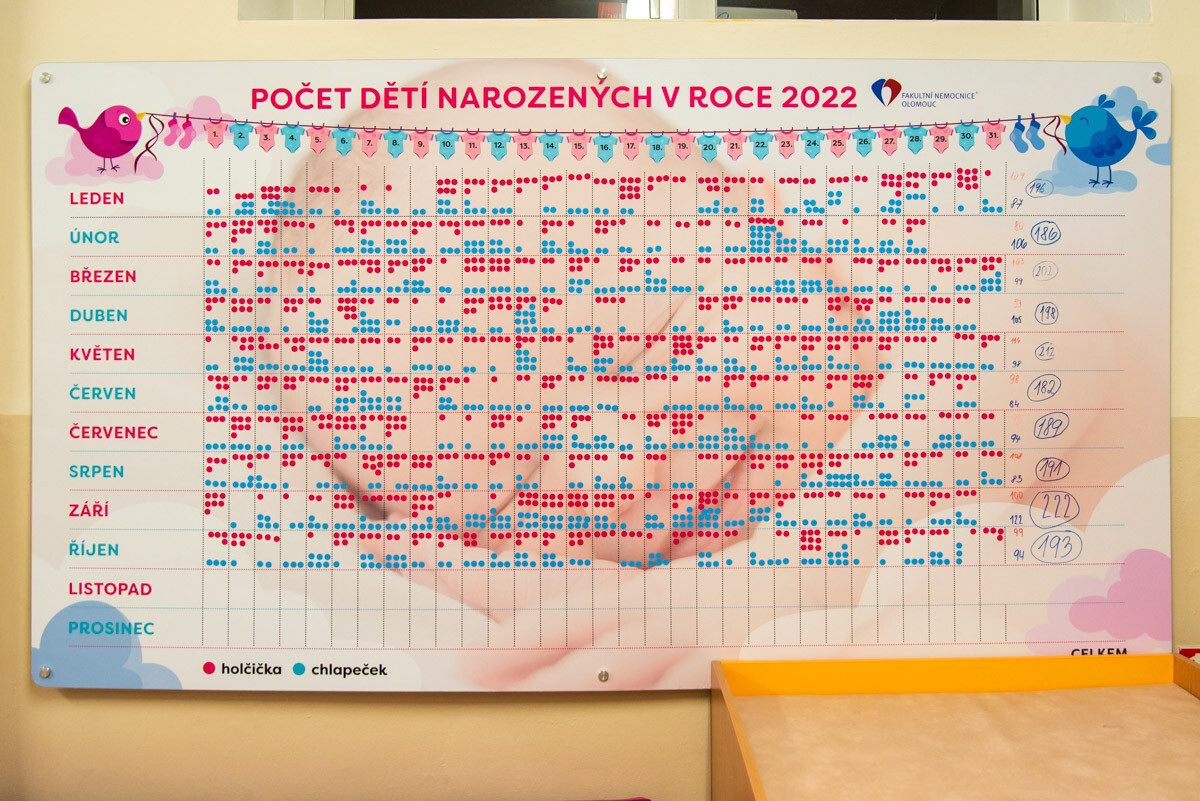 POČET DĚTÍ NAROZENÝCH V ROCE 2022
FAKULTNÍ NEMOCNICE
OLOMOUC
1. 2. 3. 4. 5. 6. 7. 8. 9. 10. 11. 12. 13. 14. 15. 16. 17. 18. 19. 20. 21. 22. 23. 24. 25. 26. 27. 28. 29. 30. 31.
LEDEN 109 87 196
ÚNOR 80 106 186
BŘEZEN 99 202
DUBEN 93 105 198
KVĚTEN 114 98 212
ČERVEN 98 84 182
ČERVENEC 94 189
SRPEN 108 83 191
ZÁŘÍ 100 122 222
ŘÍJEN 99 94 193
LISTOPAD
PROSINEC
CELKEM
holčička chlapeček